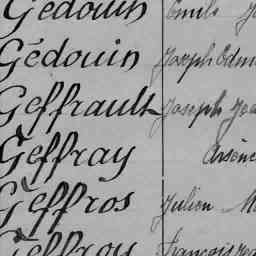 Gédouin Emile
Gédouin Joseph Edm
Geffrault Joseph Jea
Geffray Arsène
Geffros Julien M
Geffroy François Jea